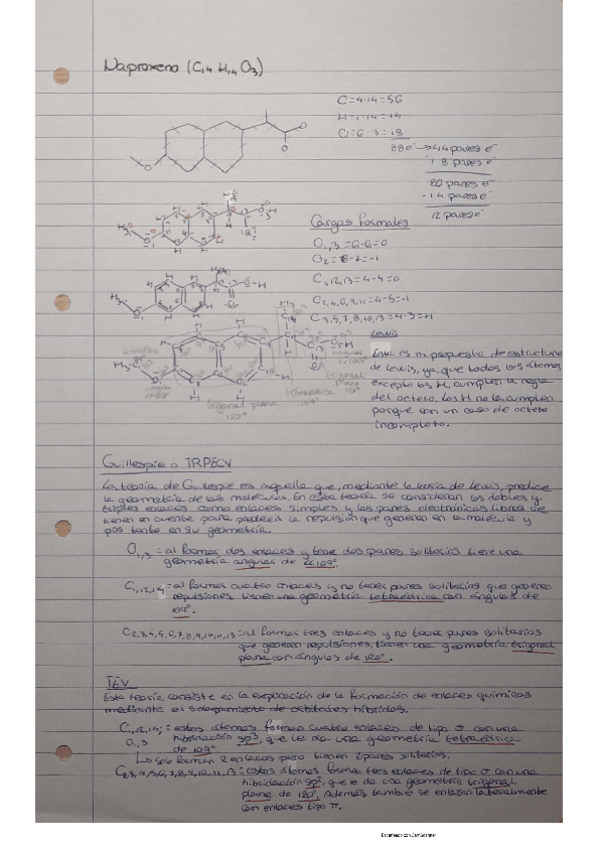 Naproxeno (C14 H14 O3)
C=4·14=56
H=1·14=14
O=6·3=18
88e⁻→44 pares e⁻
pares e⁻
pares e⁻
-14 pares e⁻
12 pares e⁻
Cargas formales
O1,3=6-6=0
=-1
=4-4=0
=4-5=-1
C3,5,7,8,10,13=4-3=+1
Lewis
Esta es mi propuesta de estructura
de Lewis, ya que todos los átomos
excepto los H, cumplen la regla
del octeto. Los H no la cumplen
porque son un caso de octeto
incompleto.
trigonal plana
120°
tetraédrica
109°
Guillespie o TRPECV
La teoría de Guillespie es aquella que, mediante la teoría de Lewis, predice
la geometría de las moléculas. En esta teoría se consideran los dobles y
triples enlaces como enlaces simples y los pares electrónicos libres se
tienen en cuenta para predecir la repulsión que generen en la molécula y
por tanto en su geometría.
O1,3 = al formar dos enlaces y tener dos pares solitarios tiene una
geometría angular de <<109°.
C1,12,14 = al formar cuatro enlaces y no tener pares solitarios que generen
repulsiones tienen una geometría tetraédrica con ángulos de
109°.
C2,3,4,5,6,7,8,9,10,11,13 = al formar tres enlaces y no tener pares solitarios
que generen repulsiones, tienen una geometría trigonal
plana con ángulos de 120°.
TEV
Esta teoría consiste en la explicación de la formación de enlaces químicos
mediante el solapamiento de orbitales híbridos.
C1,12,14; = estos átomos forman cuatro enlaces de tipo σ con una
O1,3 hibridación sp3, que le da una geometría tetraédrica
de 109°.
↳ solo forman 2 enlaces pero tienen 2 pares solitarios.
C2,3,4,5,6,7,8,9,10,11,13 = estos átomos forman tres enlaces de tipo σ con una
hibridación sp2, que le da una geometría trigonal
plana de 120°. Además también se enlazan lateralmente
con enlaces tipo π.